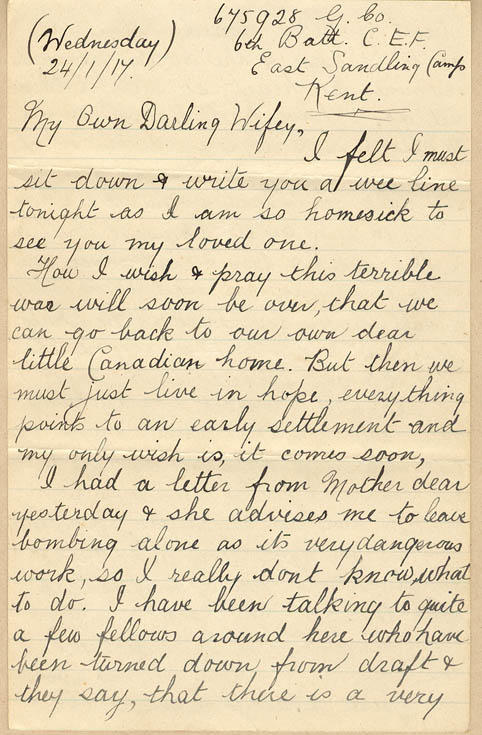 675928 G. Co.
(Wednesday) 6th Batt. C.E.F.
24/1/17. East Sandling Camp
Kent.
My Own Darling Wifey,
I felt I must
sit down & write you a wee line
tonight as I am so homesick to
see you my loved one.
How I wish & pray this terrible
war will soon be over, that we
can go back to our own dear
little Canadian home. But then we
must just live in hope, everything
points to an early settlement and
my only wish is, it comes soon,
I had a letter from Mother dear
yesterday & she advises me to leave
bombing alone as its very dangerous
work, so I really dont know, what
to do. I have been talking to quite
a few fellows around here who have
been turned down from draft &
they say, that there is a very